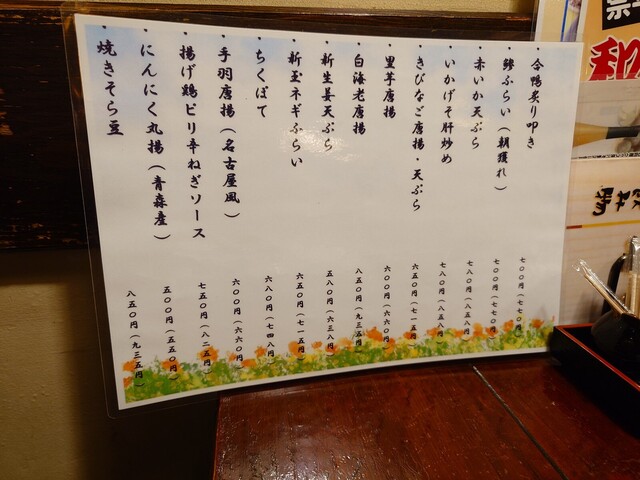 ・合鴨炙り叩き 七〇〇円(七七〇円)
・鯵ふらい(朝獲れ) 七〇〇円(七七〇円)
・赤いか天ぷら 七八〇円(八五八円)
・いかげそ肝炒め 七八〇円(八五八円)
・きびなご唐揚・天ぷら 六五〇円(七一五円)
・里芋唐揚 六〇〇円(六六〇円)
・白海老唐揚 八五〇円(九三五円)
・新生姜天ぷら 五八〇円(六三八円)
・新玉ネギふらい 六五〇円(七一五円)
・ちくぽて 六八〇円(七四八円)
・手羽唐揚(名古屋風) 六〇〇円(六六〇円)
・揚げ鶏ピリ辛ねぎソース 七五〇円(八二五円)
・にんにく丸揚(青森産) 五〇〇円(五五〇円)
・焼きそら豆 八五〇円(九三五円)